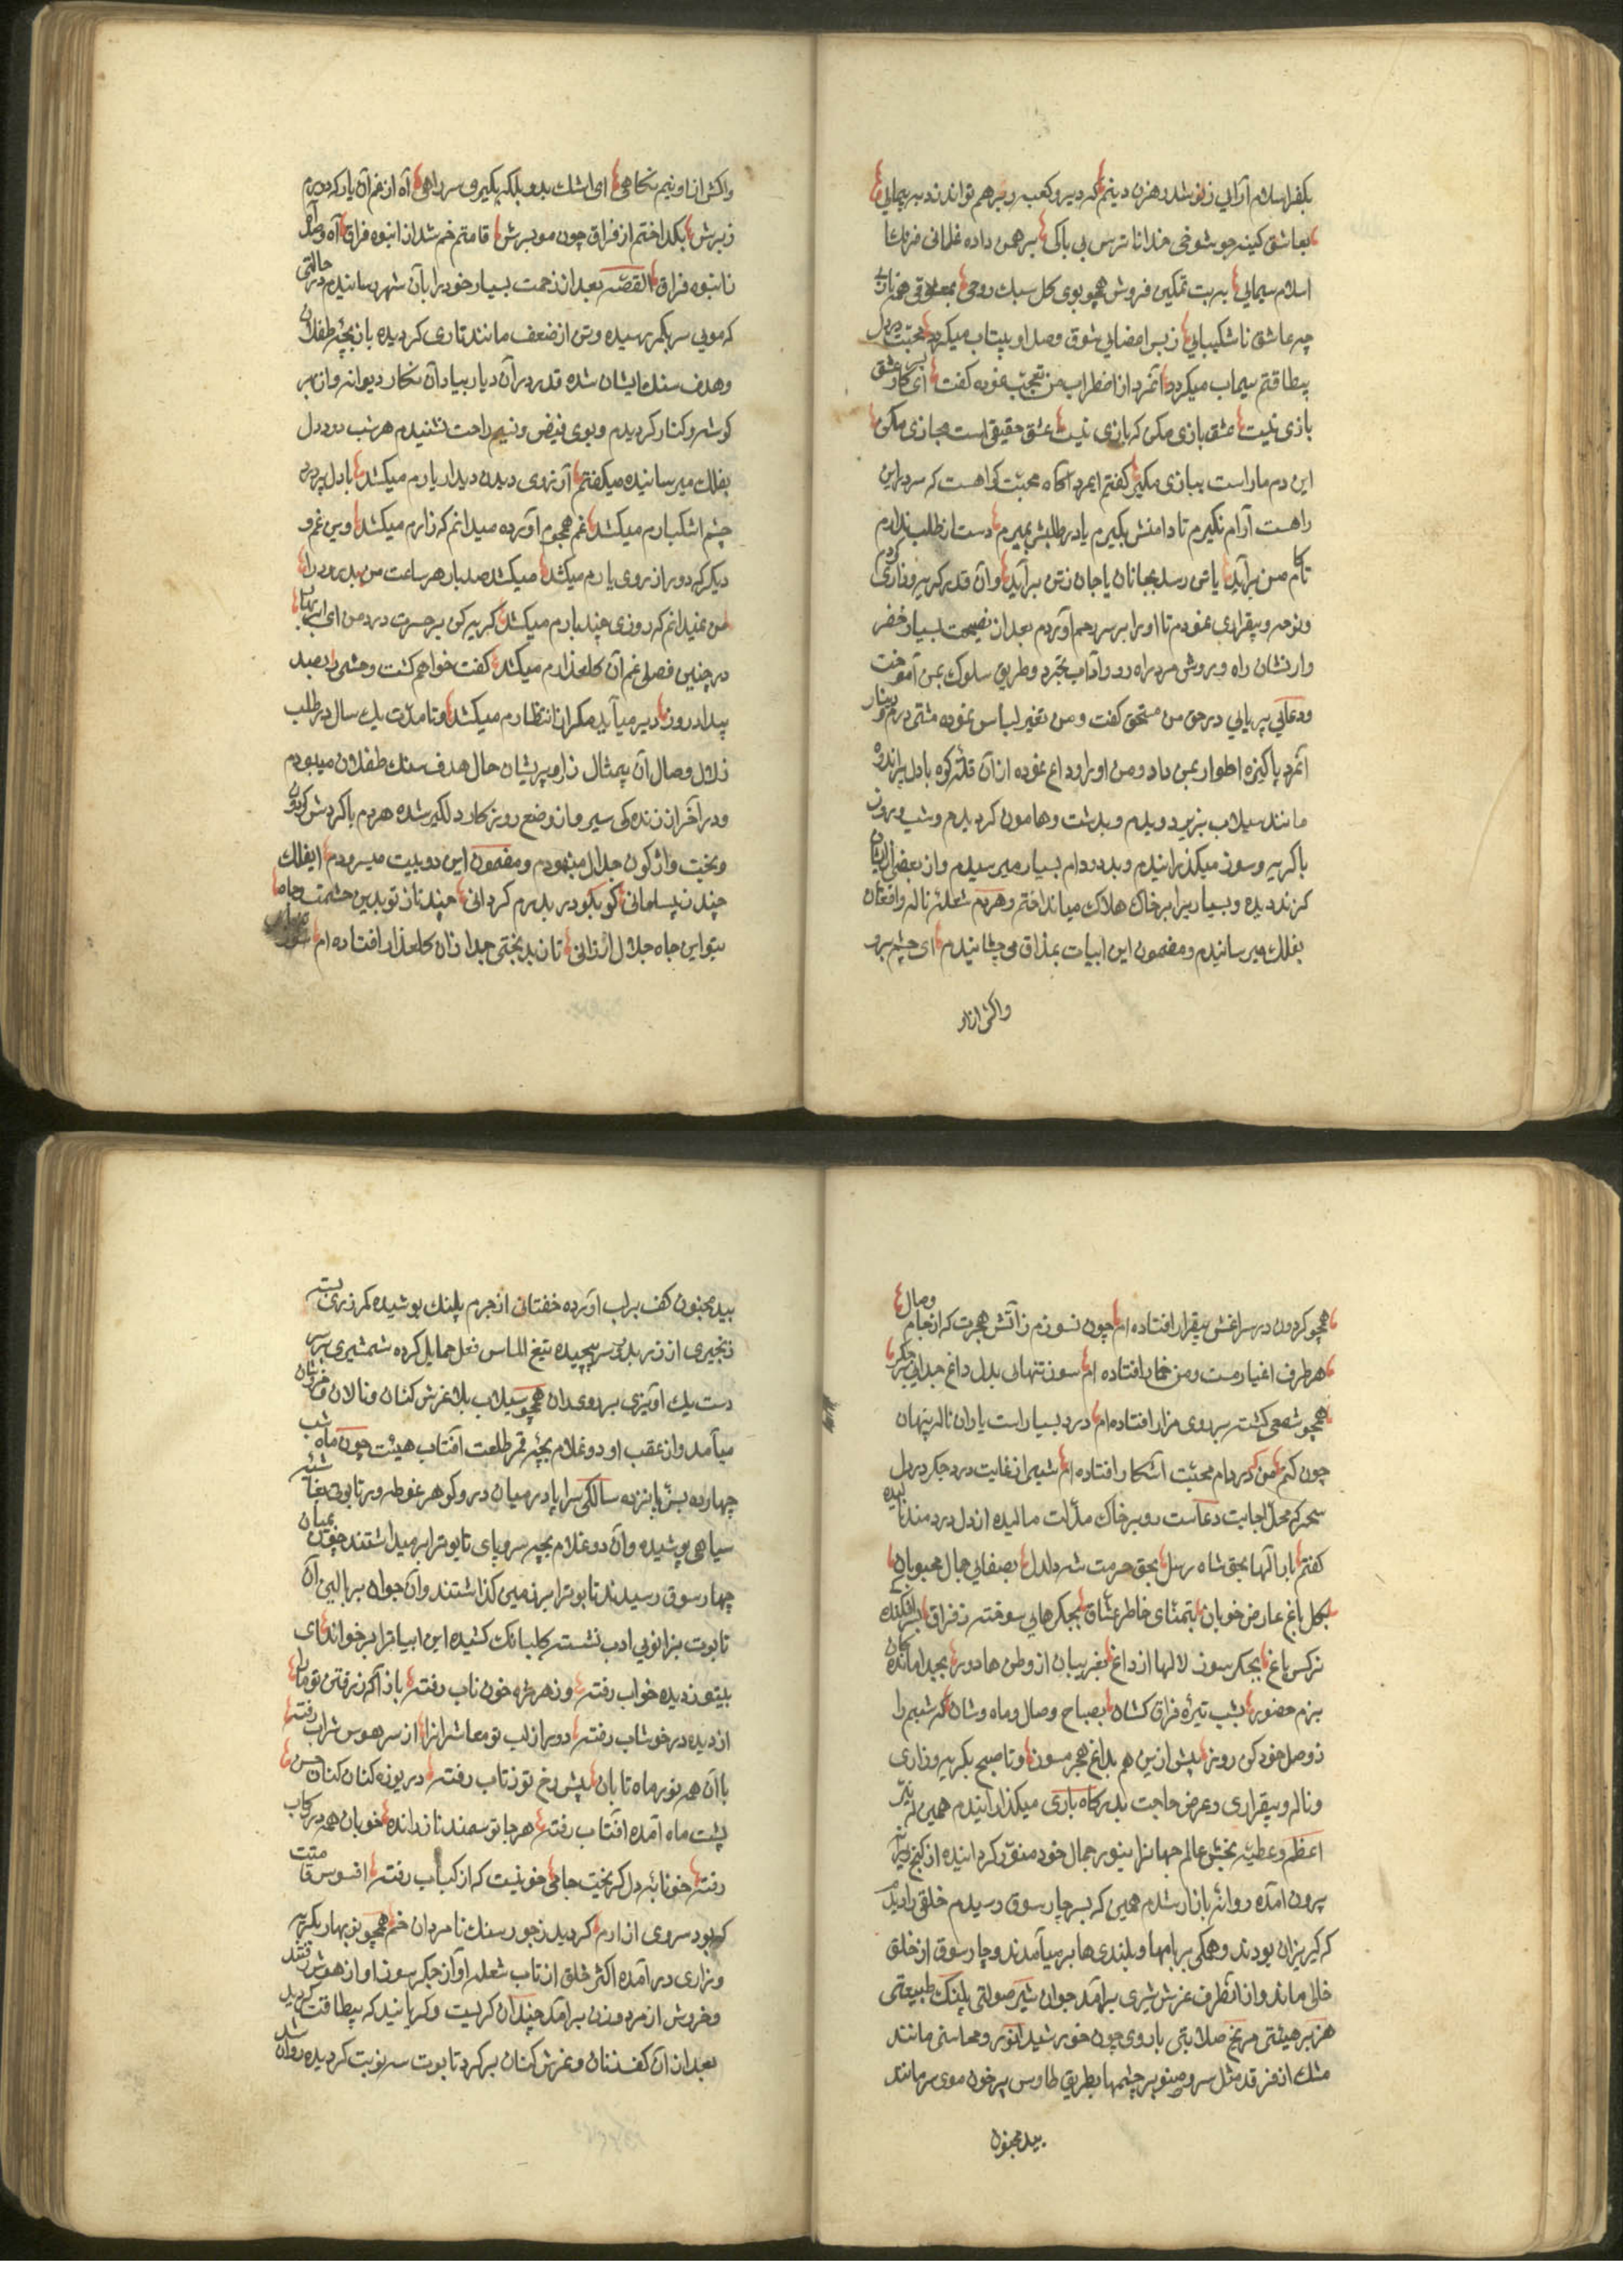 بکفر اسلام آرایی زنو شد رهزن دینم که دیر و کعبه بر هم تواند زد به پیمایی
بعاشق کینه جو شوخی خدا ناترس بی باکی بر همن داده غلمانی فرنک
اسلام سیمایی به بت تمکین فروش همچو بوی کل سبک روحی بمعشوقی همه ناز
چه عاشق ناشکیبایی ز بس امضایی شوق وصل او بیتاب میکردد محبت در دل
بیطاقتم سیماب میکردد آنمرد از اضطراب من تعجب نموده کفت ای کار عشق
بازی نیست عشق بازی مکن که بازی نیست عشق حقیقی است مجازی مکن
این دم مار است ببازی مکیر کفتم ایمرد آکاه محبت کواهست که سر در این
راهست آرام نکیرم تا دامنش بکیرم یا در طلبش بمیرم دست از طلب ندارم
تا کام من برآید یا تن رسد بجانان یا جان ز تن برآید و آن قدر کریه و زاری کردم
و نوحه و بیقراری نمودم تا او را بر سر رحم آوردم بعد از نصیحت بسیار خضر
وار نشان راه و بروش مرد راه رو و آداب تجرد و طریق سلوک بمن آموخت
و دعایی بیریایی در حق من مستحق کفت و من تغیر لباس نموده مشتی درم و دینار
آنمرد پاکیزه اطوار بمن داد و من او را وداع نموده از آن قله کوه با دل پر اندوه
مانند سیلاب بزیر دویدم و بدشت و هامون کردیدم و شب و روز
با کریه و سوز میکذرانیدم و بدد و دام بسیار میرسیدم و از بعضی از ایشان
کزند دیده و بسیاریرا بر خاک هلاک میانداختم و هردم شعله ناله و افغان
بفلک میرسانیدم و مضمون این ابیات بمذاق می چشانیدم ای چشم برو
واکش از او
واکش از او نیم نکاهی ای اشک بدو بلکه بکیری سر راهی آه از غم آن یار که دورم
ز برش بکداختم از فراق چون مو ببرش قامتم خم شد از انبوه فراق آه و صد آه
ز انبوه فراق القصه بعد از زحمت بسیار خود را بآن شهر رسانیدم در حالتی
که مویی سر بکمر رسیده و تن از ضعف مانند تاری کردیده بازیچه طفلان
و هدف سنک ایشان شده قدر در آن دیار بیاد آن نکار دیوانه وار بهر
کوشه و کنار کردیدم و بوی فیض و نسیم راحت نشنیدم هر شب دود دل
بفلک میرسانیده میکفتم آرزوی دیدن دیدار یارم میکشد با دل پر درد
چشم اشکبارم میکشد غم هجوم آورده میدانم که زارم میکشد وین غم و
دیکر که دور از روی یارم میکشد میکشد صد بار هر ساعت من بد روز را
من نمیدانم که روزی چند بارم میکشد کریه کن بر حسرت درد من ای ابر بهار
در چنین فصلی غم آن کلعذارم میکشد کفت خواهم کشت وحشی را بصد
بیداد روز دیر میآید مکر از انتظارم میکشد و تا مدت یک سال در طلب
زلال وصال آن بیمثال زار و پریشان حال هدف سنک طفلان میبودم
و در آخر از زنده کی سیر و از وضع روزکار دلکیر شده هردم با کردش کردون
و بخت واژکون جدال مینمودم و مضمون این دو بیت میسرودم ایفلک
چند ز پسامانی کو بکو در بدرم کردانی چند ناز تو بدین حشمت و جاه
بتو این جاه جلال ارزانی تا ز بد بختی جدا زان کلعذار افتاده ام
همچو کردون در سراغش بیقرار افتاده ام چون نسوزم ز آتش هجرت که از جام وصال
هر طرف اغیار مست و من خمار افتاده ام سوز تنهایی بدل داغ جدایی بر جکر
همچو شمعی کشته بر روی مزار افتاده ام درد بسیار است یاران ناله پنهان
چون کنم من که در دام محبت آشکار افتاده ام شبی از غایت درد جکر در دل
سحر که محل اجابت دعاست رو بر خاک مذلت مالیده از دل دردمند نالیده
کفتم بار الها بحق شاه رسل بحق حرمت شه دلدل بصفایی جمال محبوبان
بکل باغ عارض خوبان بتمنای خاطر عشاق بجکرهایی سوخته ز فراق بسر افکندکی
نرکس باغ بجکر سوز لالها از داغ بغریبان از وطن ها دور بجدا ماندکان
بزم حضور بشب تیره فراق کشان بصباح وصال و ماه وشان که شبم را
ز وصل خود کن روز بیش از این هم بداغ هجر مسوز و تا صبح بکریه و زاری
و ناله و بیقراری و عرض حاجت بدرکاه باری میکذرانیدم همین که نیر
اعظم و عطیه بخش عالم جهانرا بنور جمال خود منور کردانیده از کنج ویرانه
بیرون آمده روانه بازار شدم همین که بسر چار سوق رسیدم خلقی را دیدم
که کریزان بودند و همکی بر بامها و بلندی ها بر میآمدند و چار سوق از خلق
خالی ماند و از آنطرف غرش شیری برآمد جوان شیر صولتی پلنک طبیعتی
هزبر هیئتی مریخ صلابتی با روی چون خورشید انور و محاسنی مانند
مشک اذفر قد مثل سرو صنوبر چشمها بطریق طاوس پر خون موی سر مانند
بید مجنون
بید مجنون کف بر لب آورده خفتانی از چرم پلنک پوشیده کمر زرین بسته
زنجیری از زر بدور سر پیچیده تیغ الماس فعل حمایل کرده شمشیری بر سر
دست یک آویزی بر روی ران همچو سیلاب بلا غرش کنان و نالان و خروشان
میآمد و از عقب او دو غلام بچه قمر طلعت آفتاب هیئت چون ماه شب
چهارده بسن پانزده سالکی سراپا در میان در و کوهر غوطه ور تابوتی
سیاهی پوشیده و آن دو غلام بچه سر و پای تابوترا بر میداشتند چون بمیان
چهار سوق رسیدند تابوترا بر زمین کذاشتند و آن جوان بر بالین آن
تابوت بزانویی ادب نشسته کلبانک کشیده این ابیاترا بر خواند ای
بیتو ز دیده خواب رفته وز هر مژه خون ناب رفته باز آ که ز رفتن تو ما را
از دیده در خوشاب رفته دور از لب تو معاشرانرا از سر هوس شراب رفته
با آن همه نور ماه تابان پیش رخ تو ز تاب رفته دریوزه کنان کنان حسن
پشت ماه آمده آفتاب رفته هر جا تو سمند ناز رانده خوبان همه در رکاب
رفته خونابه دل که ریخت جامی خونیست که از کباب رفته افسوس قامتت
که بود سروی از ارم کردید ز جور سنک نامردان خم همچو نو بهار بکریه
و زاری در آمده اکثر خلق از تاب شعله آواز جکر سوز او از هوش رفتند
و خروش از مرد و زن برآمد چندان کریست و کریانید که بیطاقت کردید
بعد از آن کف زنان و غرش کنان بر کرد تابوت سه نوبت کردیده روان شد